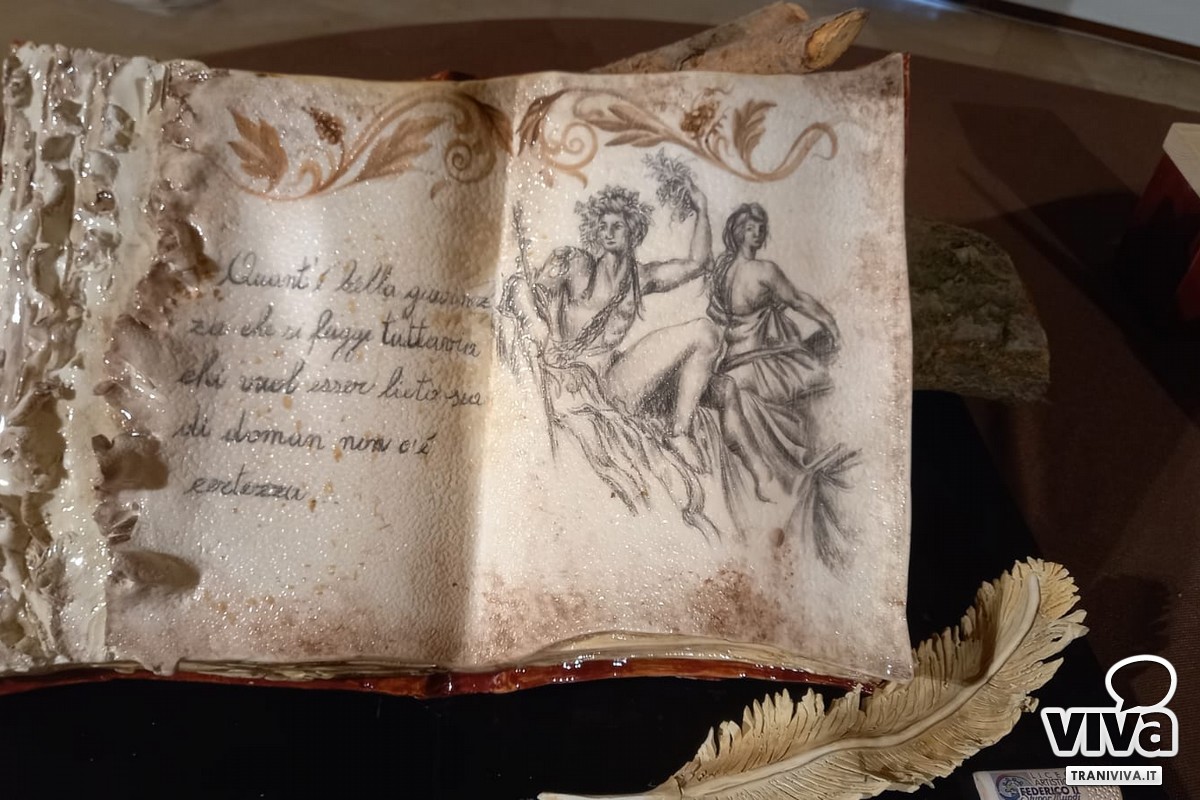 Quant'è bella giovinez
za che si fugge tuttavia
chi vuol esser lieto sia
di doman non c'é
certezza.
VIVA
TRANIVIVA.IT
LICEO
ARTISTICO
FEDERICO II